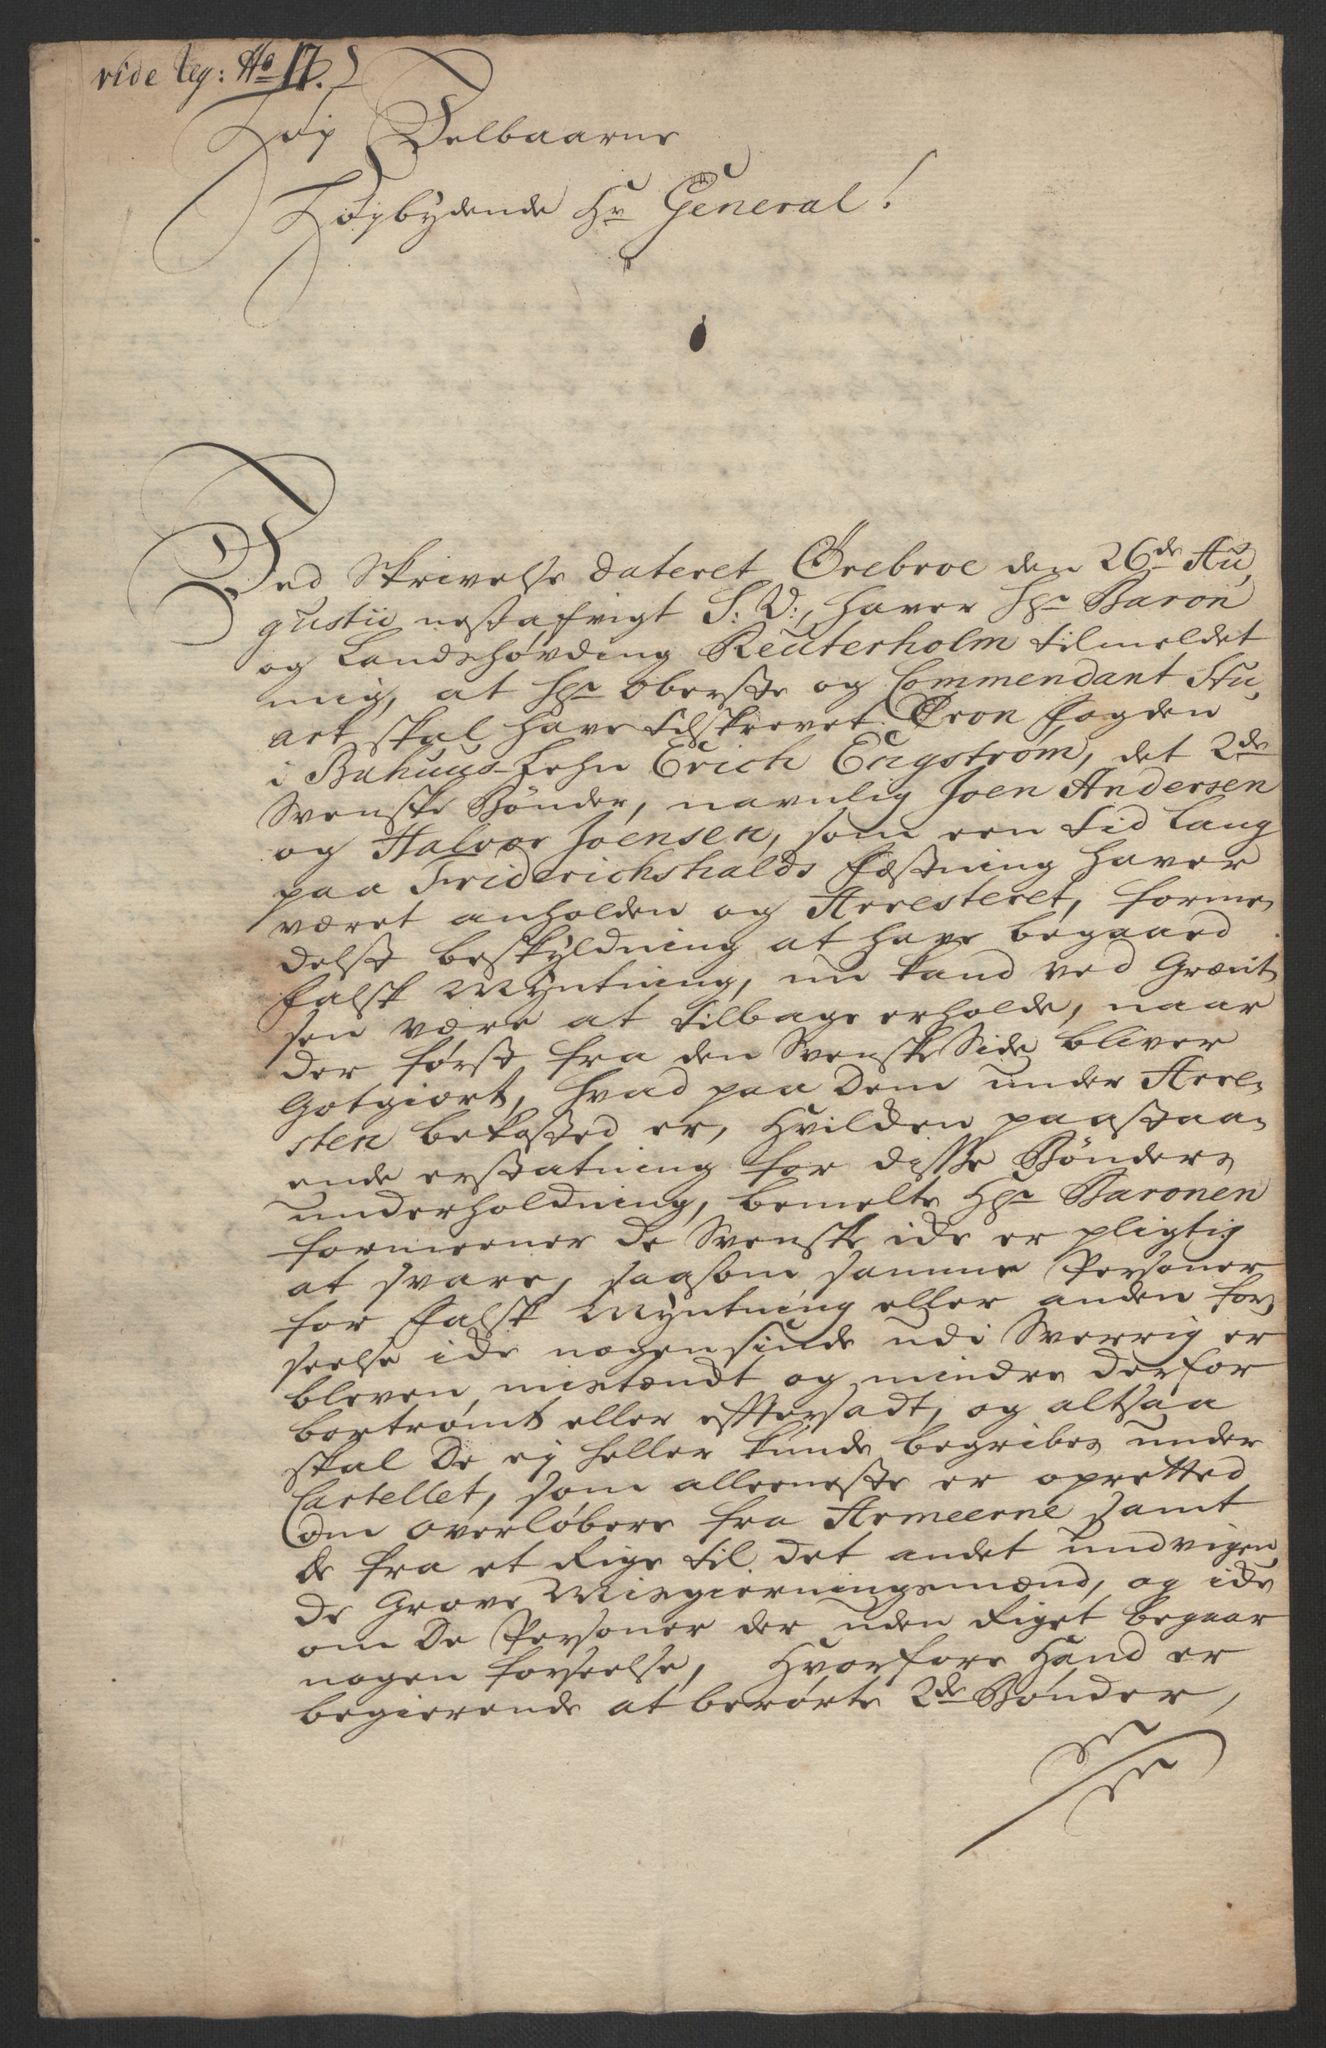 vide Reg: No 17.
Høj Edelbaarne
Højbydende Hr General!
Ved Skrivelse dateret Örebroe den 26de Au,
gustii nestafvigt S: V:, haver Hr Baron
og Landshøvding Reuterholm tilmeldet
mig, at Hr Oberste og Commendant Stu,
art skal have tilskrevet Cron fogden
i Bahuus-Lehn Erich Engström, det 2de
Svenske Bønder, navnlig Joen Andersen
og Halvor Joensen, som een tid lang
paa Friderichshalds fæstning haver
været anholden og Arresteret, forme,
delst beskyldning at have begaaed
falsk Myntning, nu kand ved Grænt,
sen være at tilbage erholde, naar
der først fra den Svenske Side bliver
Gotgiort, hvad paa dem under Arre,
sten bekosted er, hvilden paastaa,
ende erstatning for disse Bønders
underholdning, bemelte Hr Baronen
formeener de Svenske icke er pligtig
at svare, saasom samme Personer
for falsk Myntning eller anden for,
seelse icke nogensinde udi Sverrig er
bleven mistændt og mindre derfor
bortrømt eller eftersadt, og altsaa
skal de ej heller kunde begribes under
Cartellet, som alleeneste er opretted
om overløbere fra Armeerne samt
de fra et Rige til det andet undvigen,
de Grove Misgierningsmænd, og icke
om de Personer der uden Riget begaar
nogen forseelse, Hvorfore Hand er
begierende at berørte 2de Bønder,